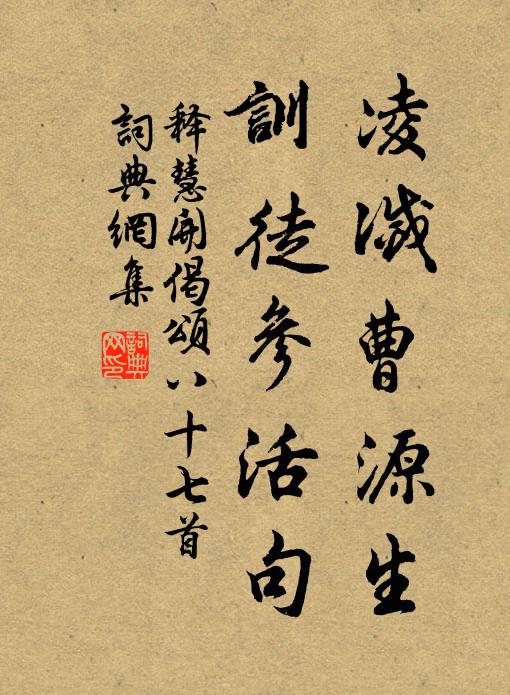 凌滅曹源生
訓徒參活句
释慧開偈頌八十七首
詞典網集
詞典網印